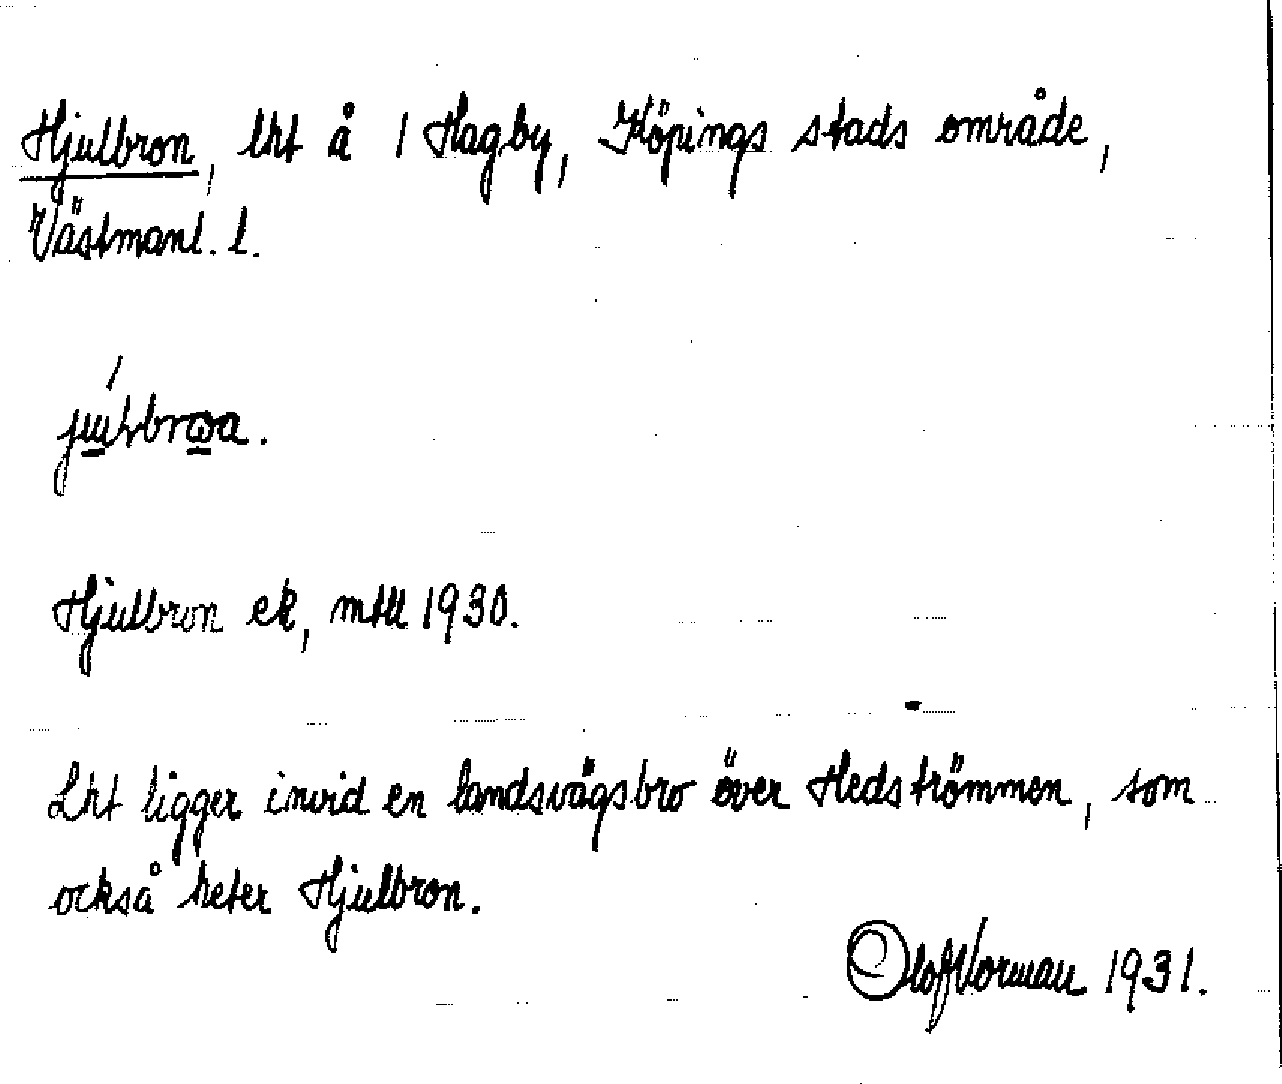 Hjulbron, lht å 1 Hagby, Köpings stads område,
Västmanl. l.
Hjulbron ek, mtll 1930.
Lht ligger invid en landsvägsbro över Hedströmmen, som
också heter Hjulbron.
Olof Norman 1931.